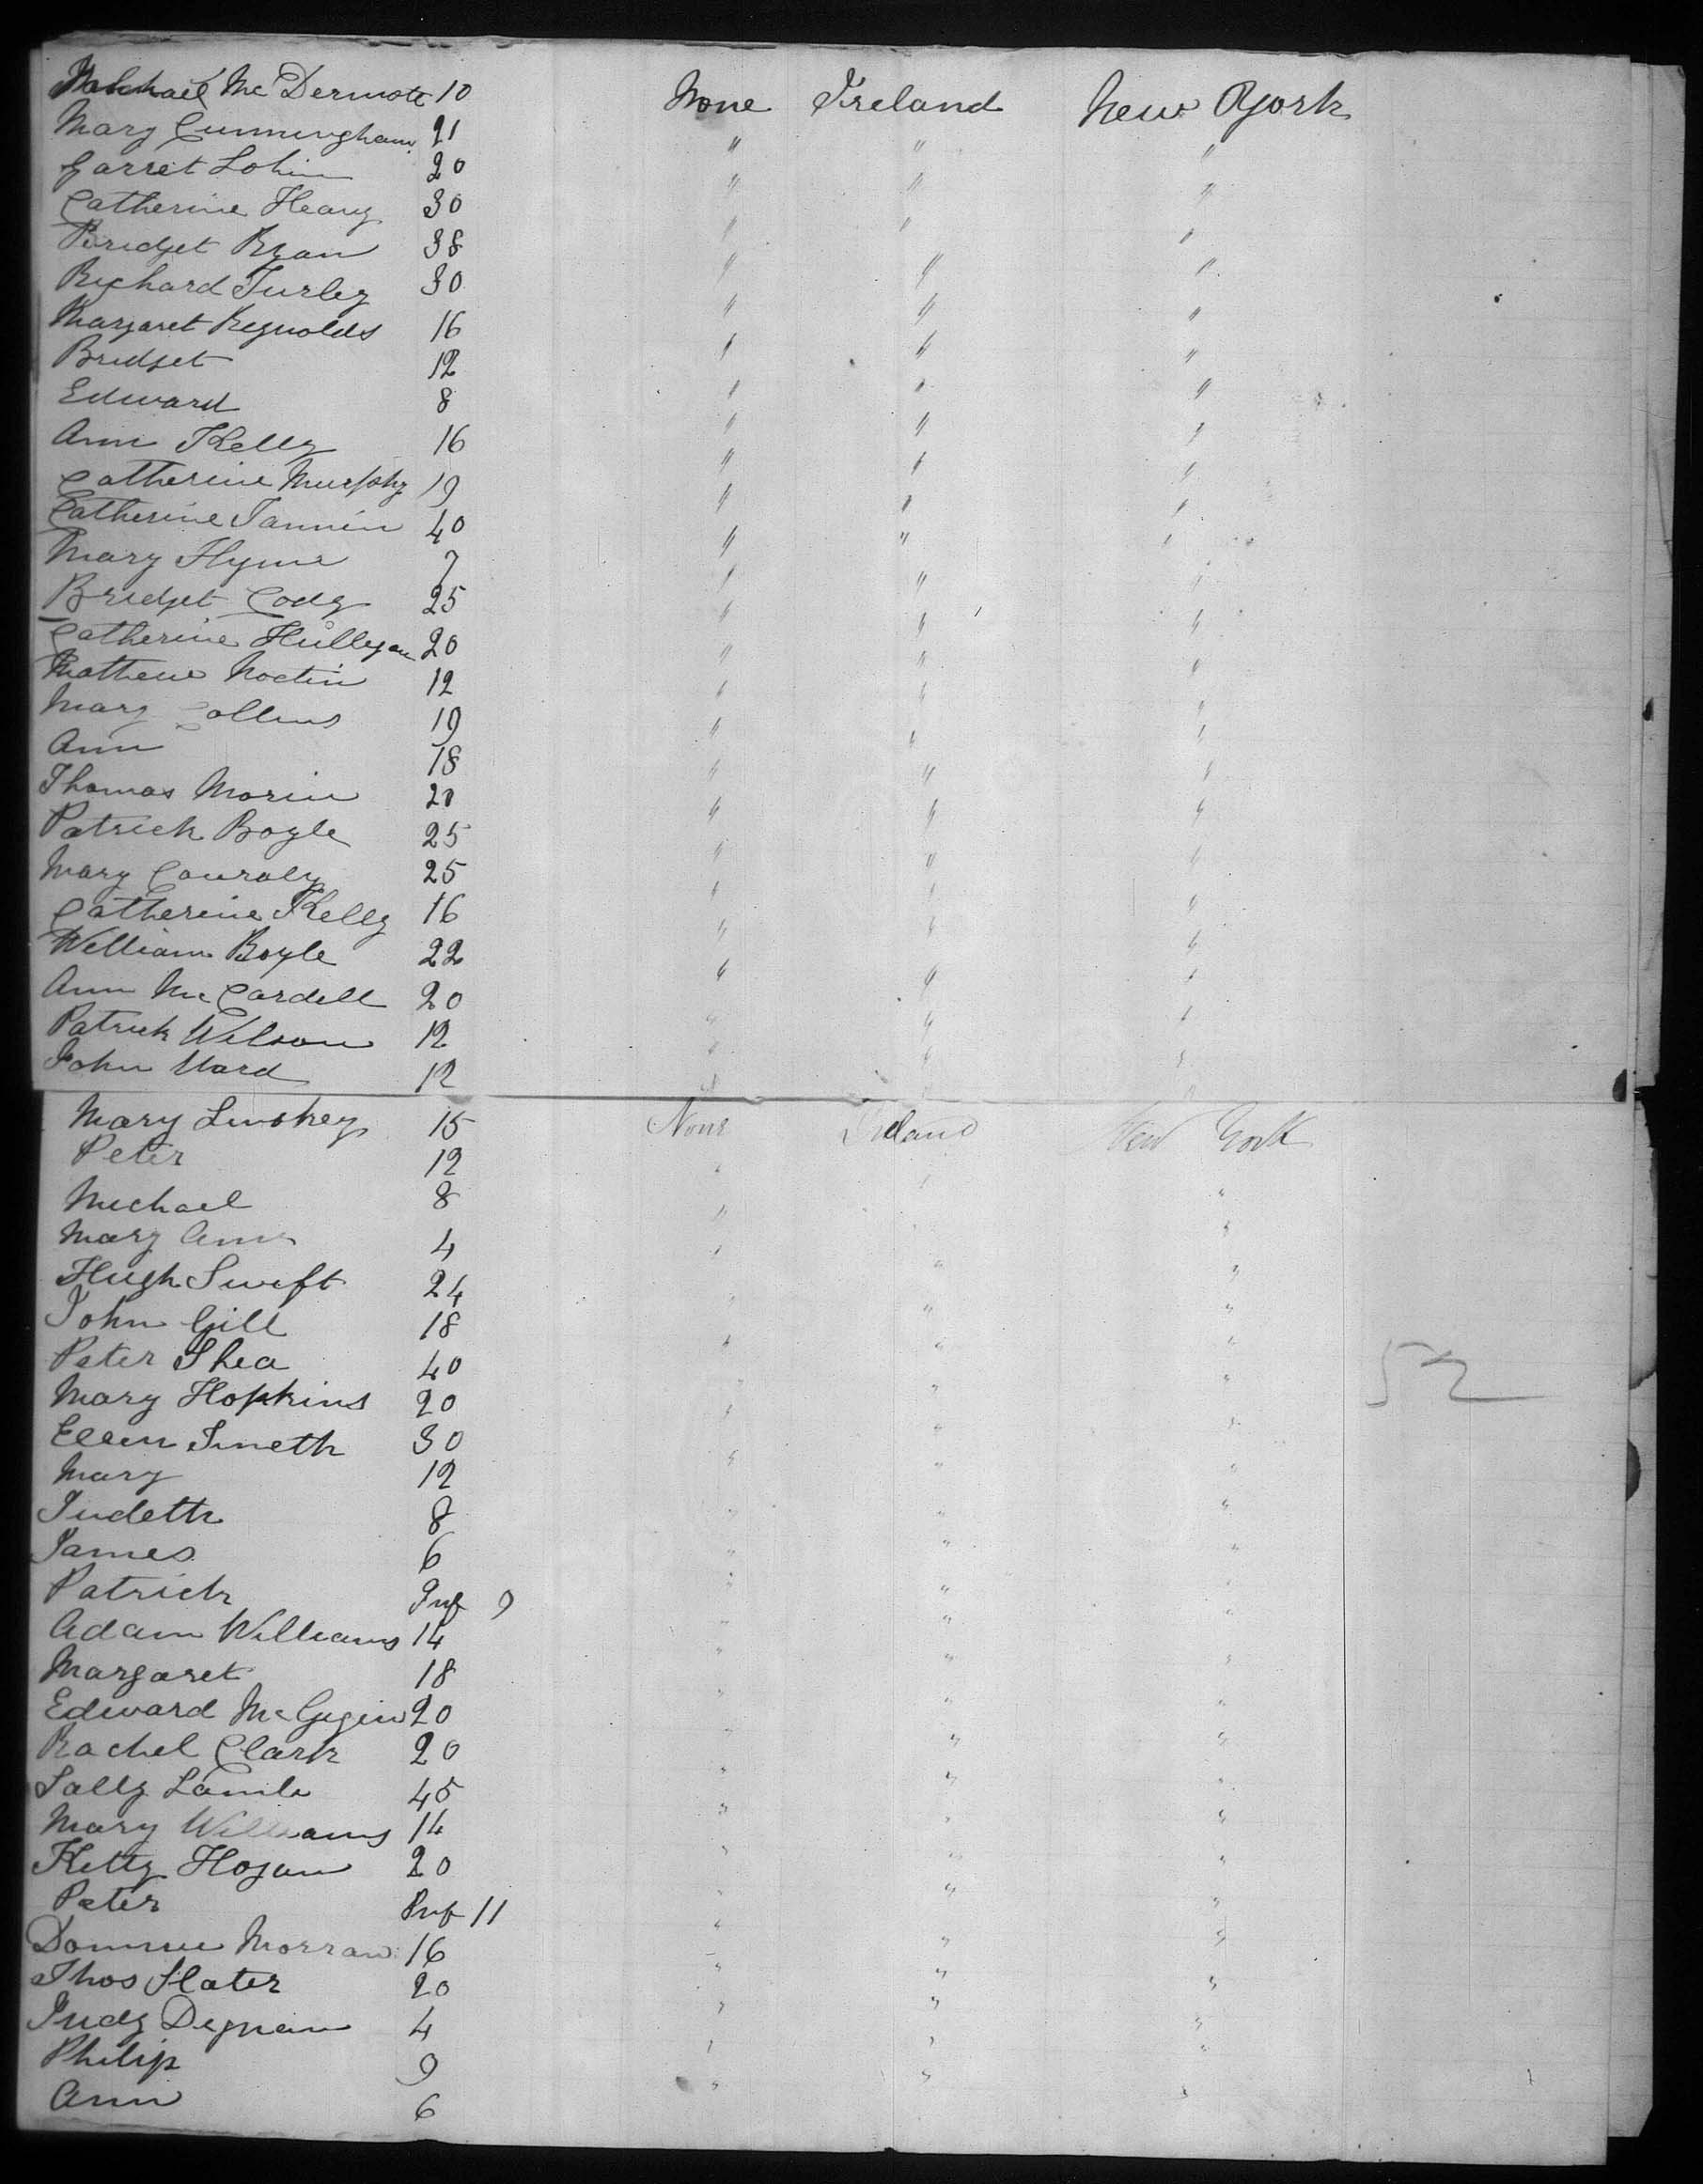 Michael McDermott 10 None Ireland New York
Mary Cunningham 21 " " "
Garret Lohin 20 " " "
Catherine Heany 30 " " "
Bridget Ryan 38 " " "
Richard Turley 30 " " "
Margaret Reynolds 16 " " "
Bridget 12 " " "
Edward 8 " " "
Ann Kelly 16 " " "
Catherine Murphy 19 " " "
Catherine Tannin 40 " " "
Mary Flynne 7 " " "
Bridget Cody 25 " " "
Catherine Hulligan 20 " " "
Mathew Noctin 12 " " "
Mary Collins 19 " " "
Ann 18 " " "
Thomas Morin 20 " " "
Patrick Boyle 25 " " "
Mary Conroly 25 " " "
Catherine Kelly 16 " " "
William Boyle 22 " " "
Ann McCardell 20 " " "
Patrick Wilson 12 " " "
John Ward 12 " " "
Mary Linskey 15 None Ireland New York
Peter 12 " " "
Michael 8 " "
Mary Ann 4 " " "
Hugh Swift 24 " " "
John Gill 18 " " "
Peter Shea 40 " " " 52
Mary Hopkins 20 " " "
Ellen Smeth 30 " " "
Mary 12 " " "
Judeth 8 " " "
James 6 " " "
Patrick Inf 9 " " "
Adam Williams 14 " " "
Margaret 18 " " "
Edward McGigin 20 " " "
Rachel Clark 20 " " "
Sally Lamb 45 " " "
Mary Williams 14 " " "
Kitty Hogan 20 " " "
Peter Inf 11 " " "
Morran 16 " " "
Thos Slater 20 " " "
Judy Degnan 4 " " "
Philip 9 " " "
Ann 6 " " "